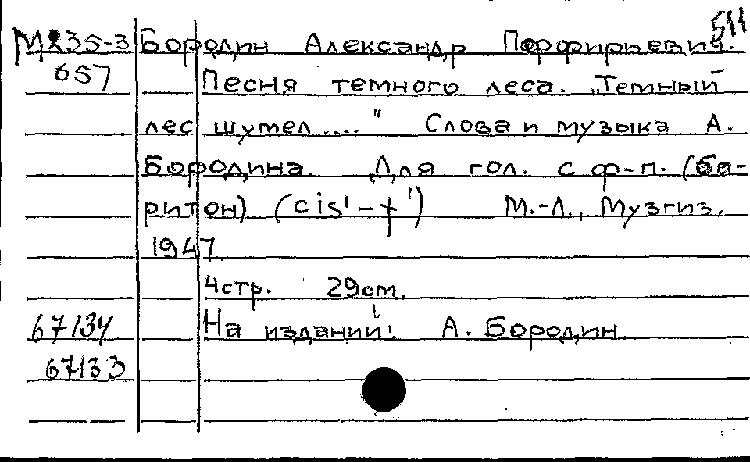 511
М235-3 Бородин Александр Порфирьевич.
657 Песня темного леса. „Темный
лес шумел...." Слова и музыка А.
Бородина. Для гол. с ф-п. (ба-
ритон) (cis¹-f¹) М.-Л., Музгиз.
1947.
4стр. 29см.
67134 На издании: А. Бородин
67133